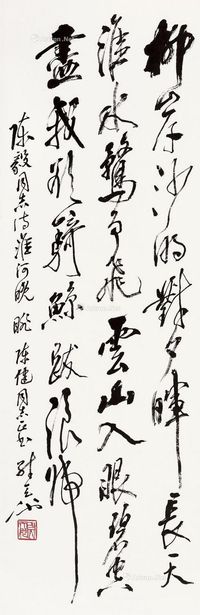 柳岸沙明對夕暉長天
淮水鶩爭飛雲山入眼碧空
盡我欲騎鯨跋浪歸
陳毅同志诗淮河晚眺 陳健同志正書